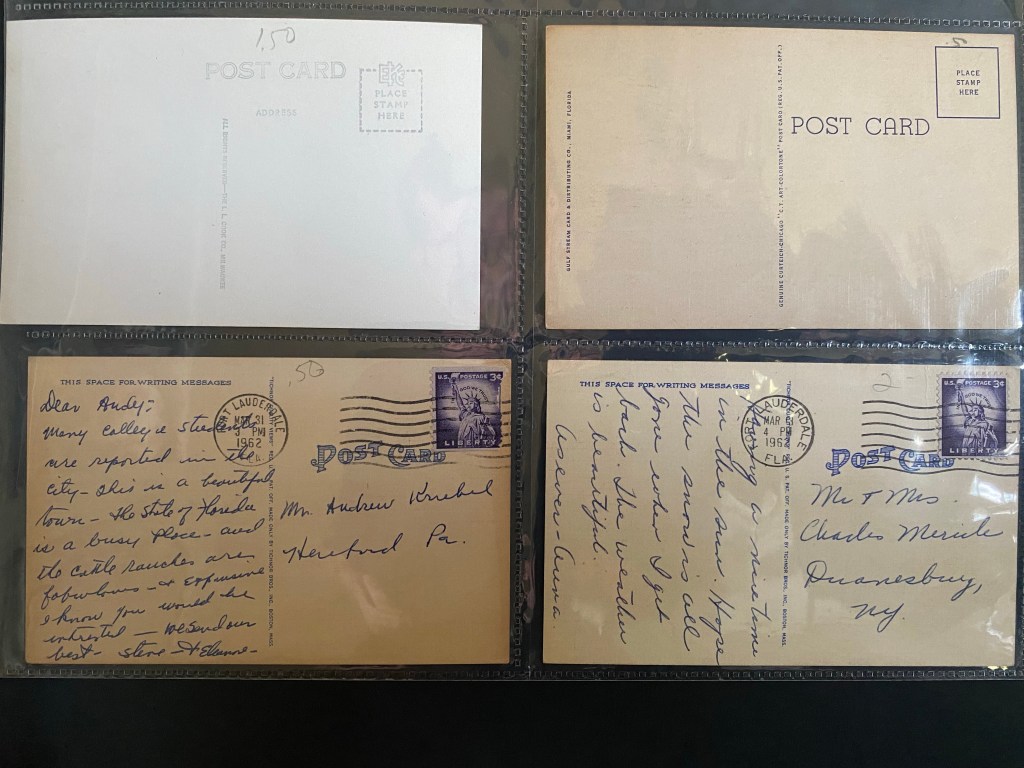 1.50
POST CARD
EKC
PLACE
STAMP
HERE
ADDRESS
PLACE
STAMP
HERE
POST CARD
GULF STREAM CARD & DISTRIBUTING CO., MIAMI, FLORIDA
GENUINE CURTEICH-CHICAGO "C.T. ART-COLORTONE" POST CARD (REG. U.S. PAT. OFF.)
.50
THIS SPACE FOR WRITING MESSAGES
Dear Andy;
Many college students
are reported in the
city - This is a beautiful
town - the State of Florida
is a busy place - and
the cattle ranches are
fabulous - & expansive
I know you would be
intrested - We send our
best - Steve - & Eleanne -
FORT LAUDERDALE
MAR 31
PM
1962
FLA
U.S. POSTAGE 3¢
IN GOD WE TRUST
LIBERTY
POST CARD
Mr. Andrew Kriebel
Hereford Pa.
MADE ONLY BY TICHNOR BROS., INC., BOSTON, MASS.
2
THIS SPACE FOR WRITING MESSAGES
Having a nice time
in the sun. Hope
the snow is all
gone when I get
back. The weather
is beautiful.
As ever - Anna.
FORT LAUDERDALE
MAR 31
4 PM
1962
FLA.
U.S. POSTAGE 3¢
IN GOD WE TRUST
LIBERTY
POST CARD
Mr & Mrs.
Charles
Duanesburg,
NY.
MADE ONLY BY TICHNOR BROS., INC., BOSTON, MASS.